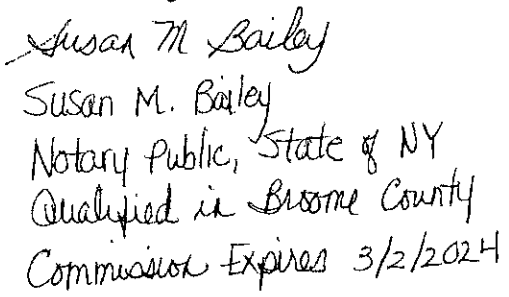 Susan M Bailey
Susan M. Bailey
Notary Public, State of NY
Qualified in Broome County
Commission Expires 3/2/2024